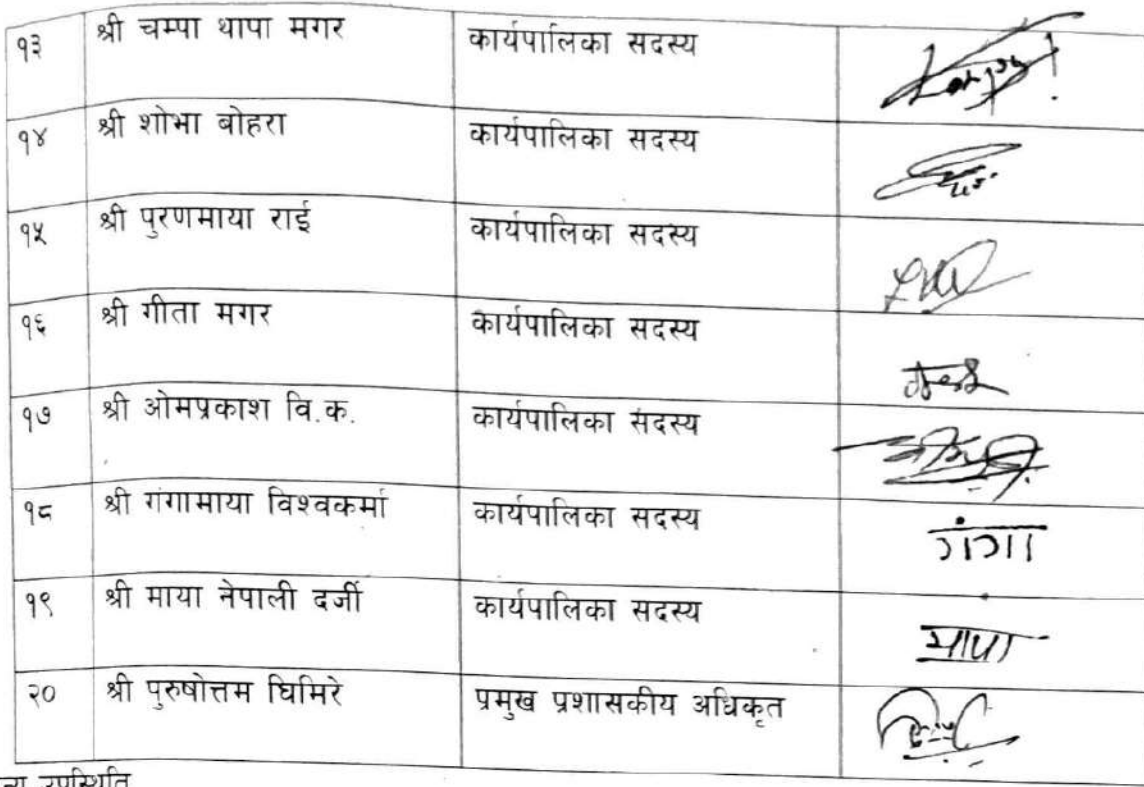 १३ श्री चम्पा थापा मगर कार्यपालिका सदस्य
१४ श्री शोभा बोहरा कार्यपालिका सदस्य
१५ श्री पुरणमाया राई कार्यपालिका सदस्य
१६ श्री गीता मगर कार्यपालिका सदस्य
१७ श्री ओमप्रकाश वि.क. कार्यपालिका सदस्य
१८ श्री गंगामाया विश्वकर्मा कार्यपालिका सदस्य गंगा
१९ श्री माया नेपाली दर्जी कार्यपालिका सदस्य माया
२० श्री पुरुषोत्तम घिमिरे प्रमुख प्रशासकीय अधिकृत
उपस्थिति